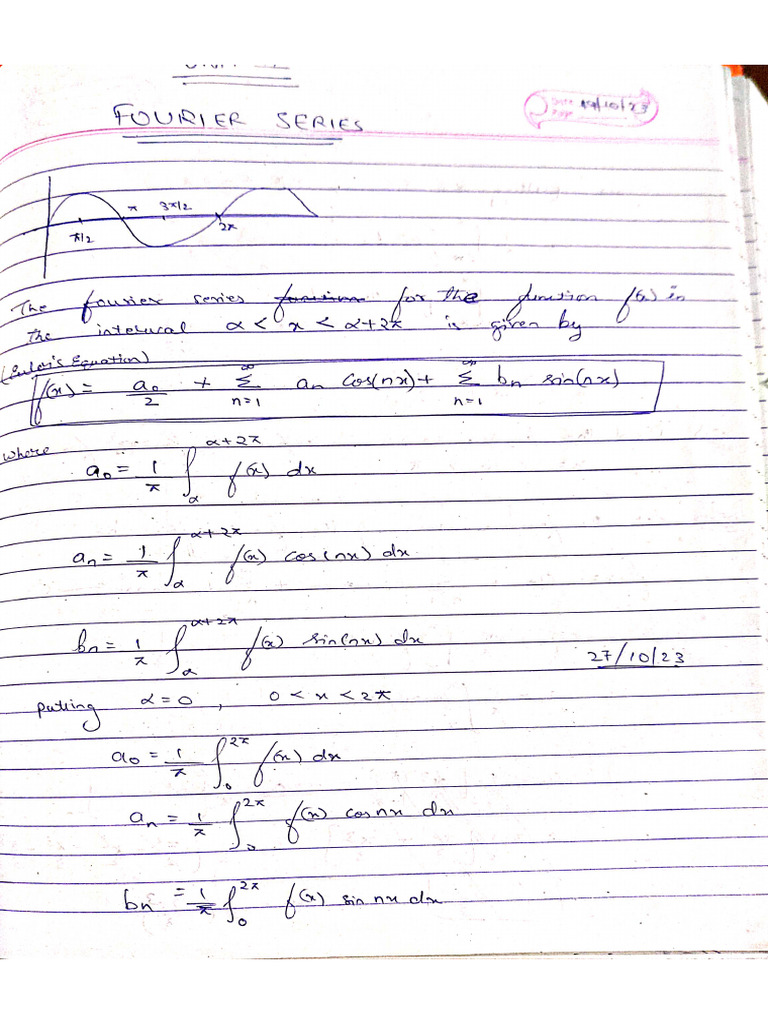 FOURIER SERIES
Date 19/10/23
Page
π/2 π 3π/2 2π
The fourier series for the function f(x) in
the interval α < x < α+2π is given by
(Euler's Equation)
f(x) = a₀/2 + ∑_{n=1}^{∞} aₙ cos(nx) + ∑_{n=1}^{∞} bₙ sin(nx)
where
a₀ = 1/π ∫_{α}^{α+2π} f(x) dx
aₙ = 1/π ∫_{α}^{α+2π} f(x) cos(nx) dx
bₙ = 1/π ∫_{α}^{α+2π} f(x) sin(nx) dx
27/10/23
Putting α = 0 , 0 < x < 2π
a₀ = 1/π ∫_{0}^{2π} f(x) dx
aₙ = 1/π ∫_{0}^{2π} f(x) cos nx dx
bₙ = 1/π ∫_{0}^{2π} f(x) sin nx dx